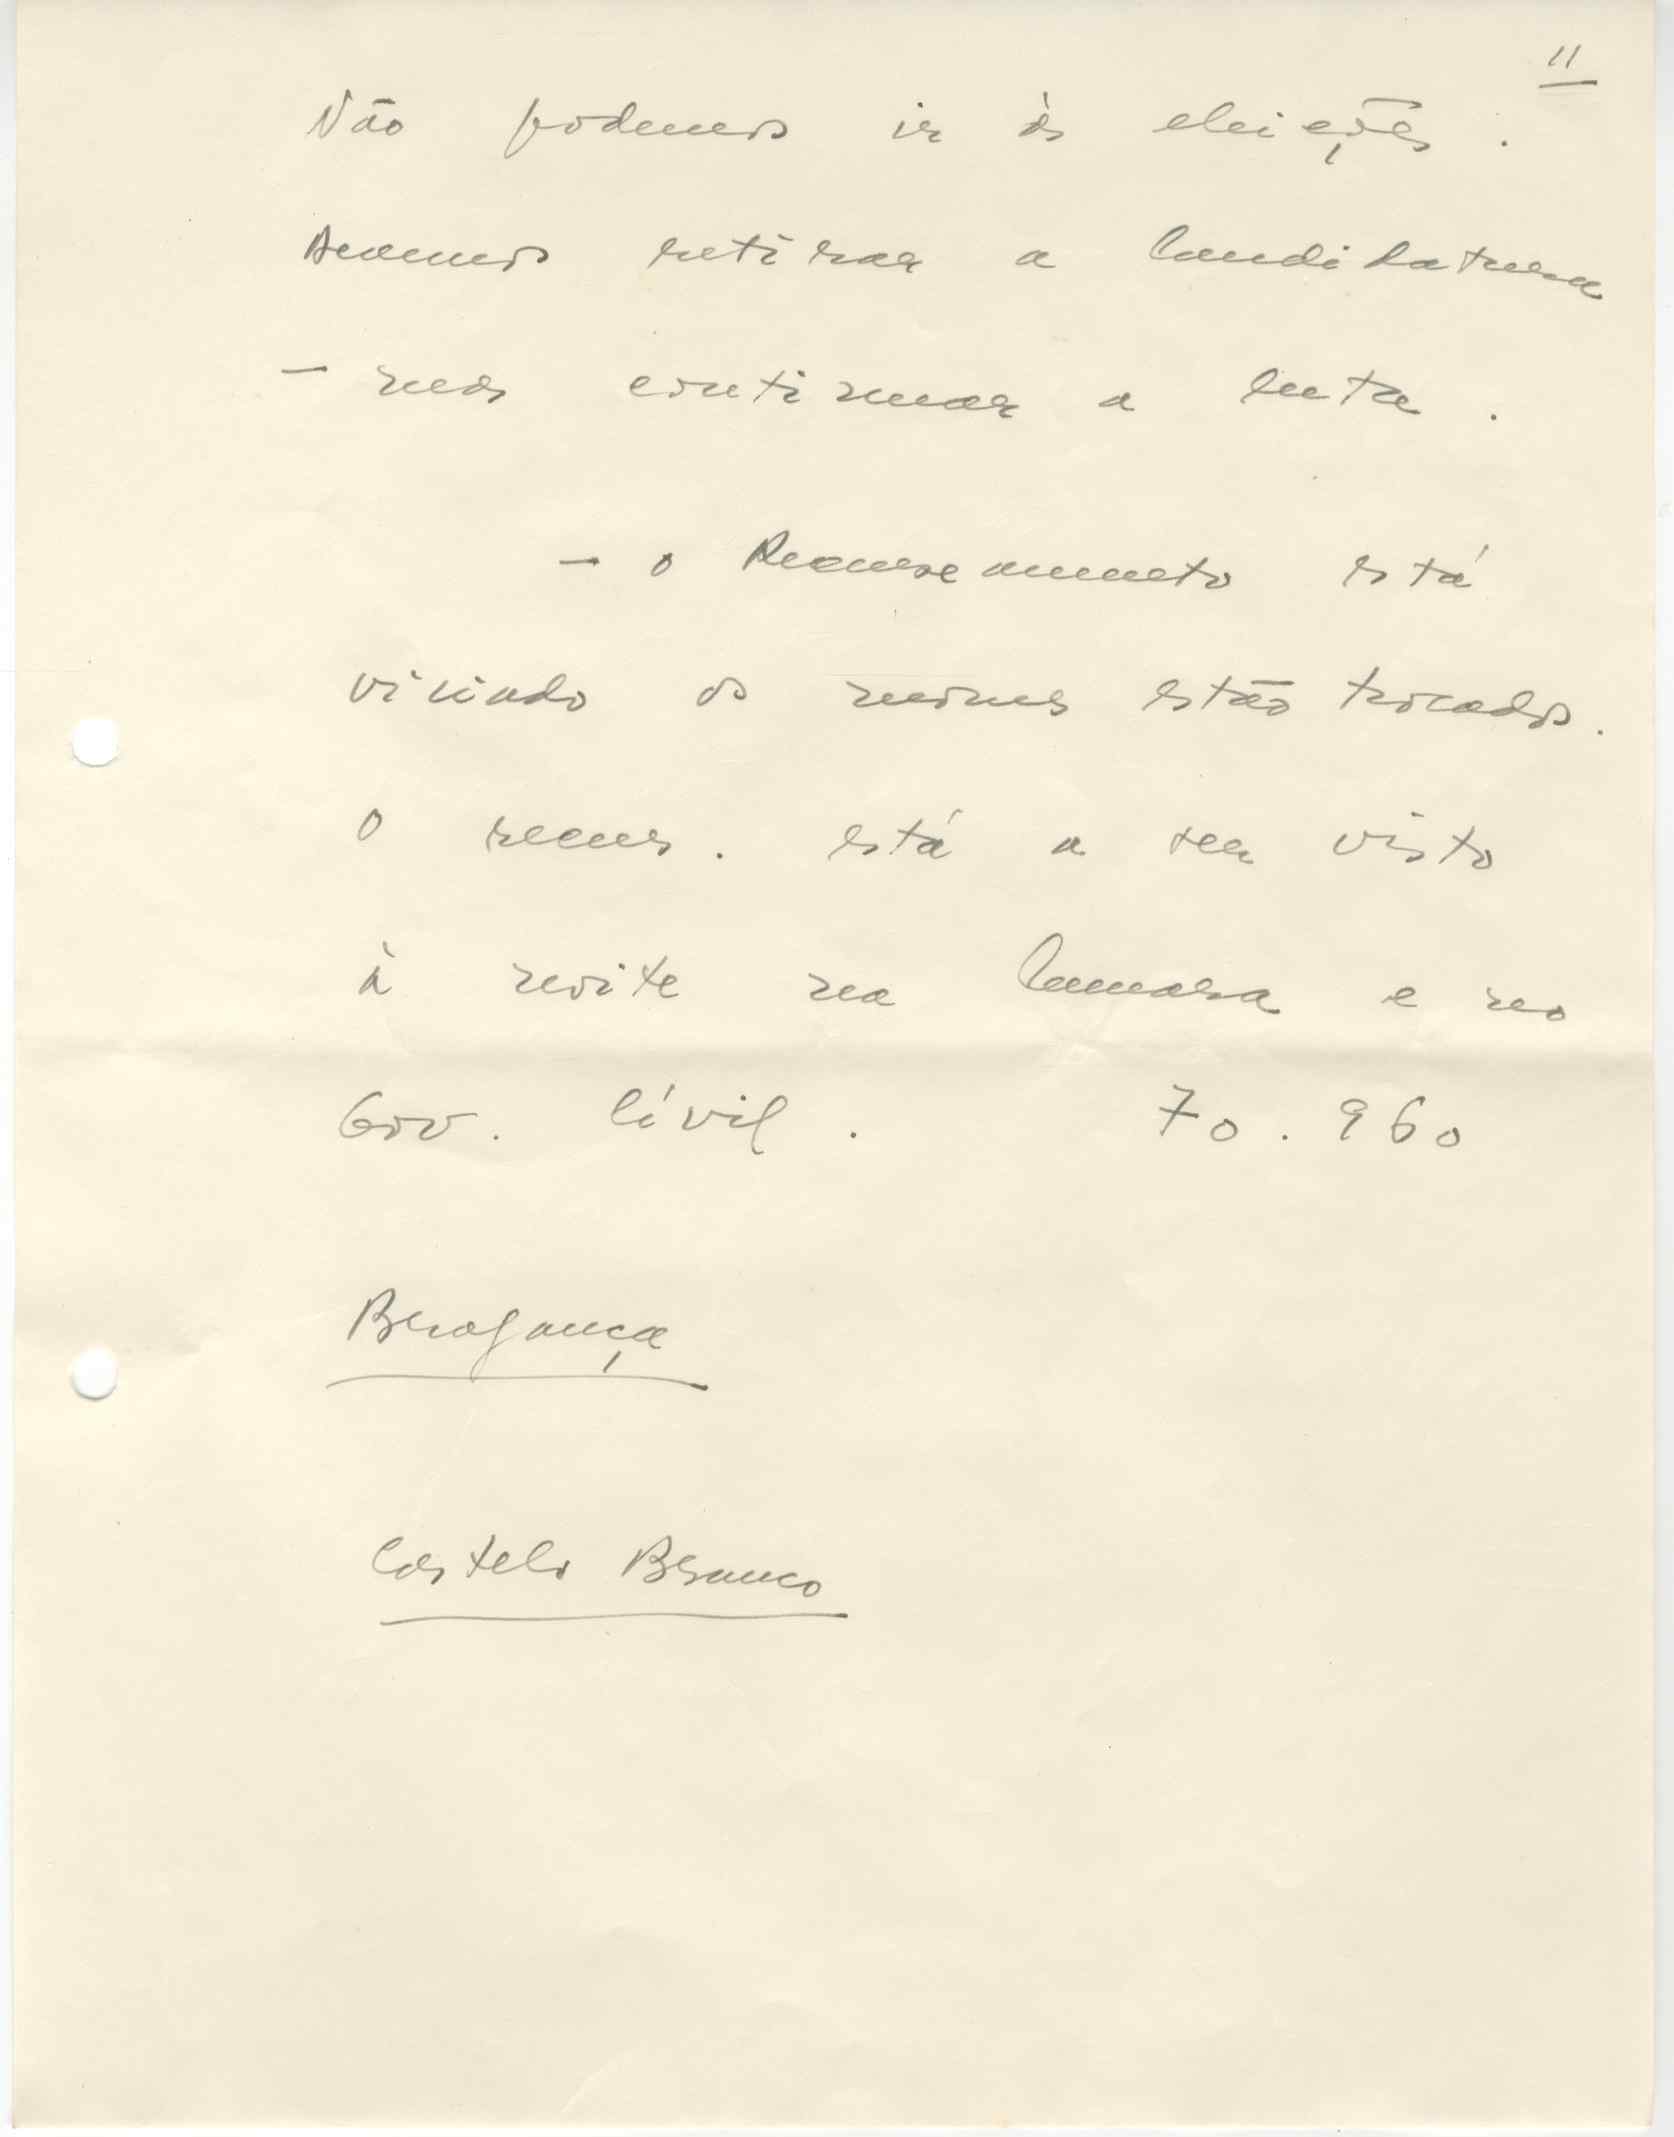 11
Não podemos ir às eleições.
Devemos retirar a Candidatura
- mas continuar a luta.
- o Recenseamento está
viciado os nomes estão trocados.
O recens. está a ser visto
à noite na Camara e no
Gov. Cívil. 70.960
Bragança
Castelo Branco